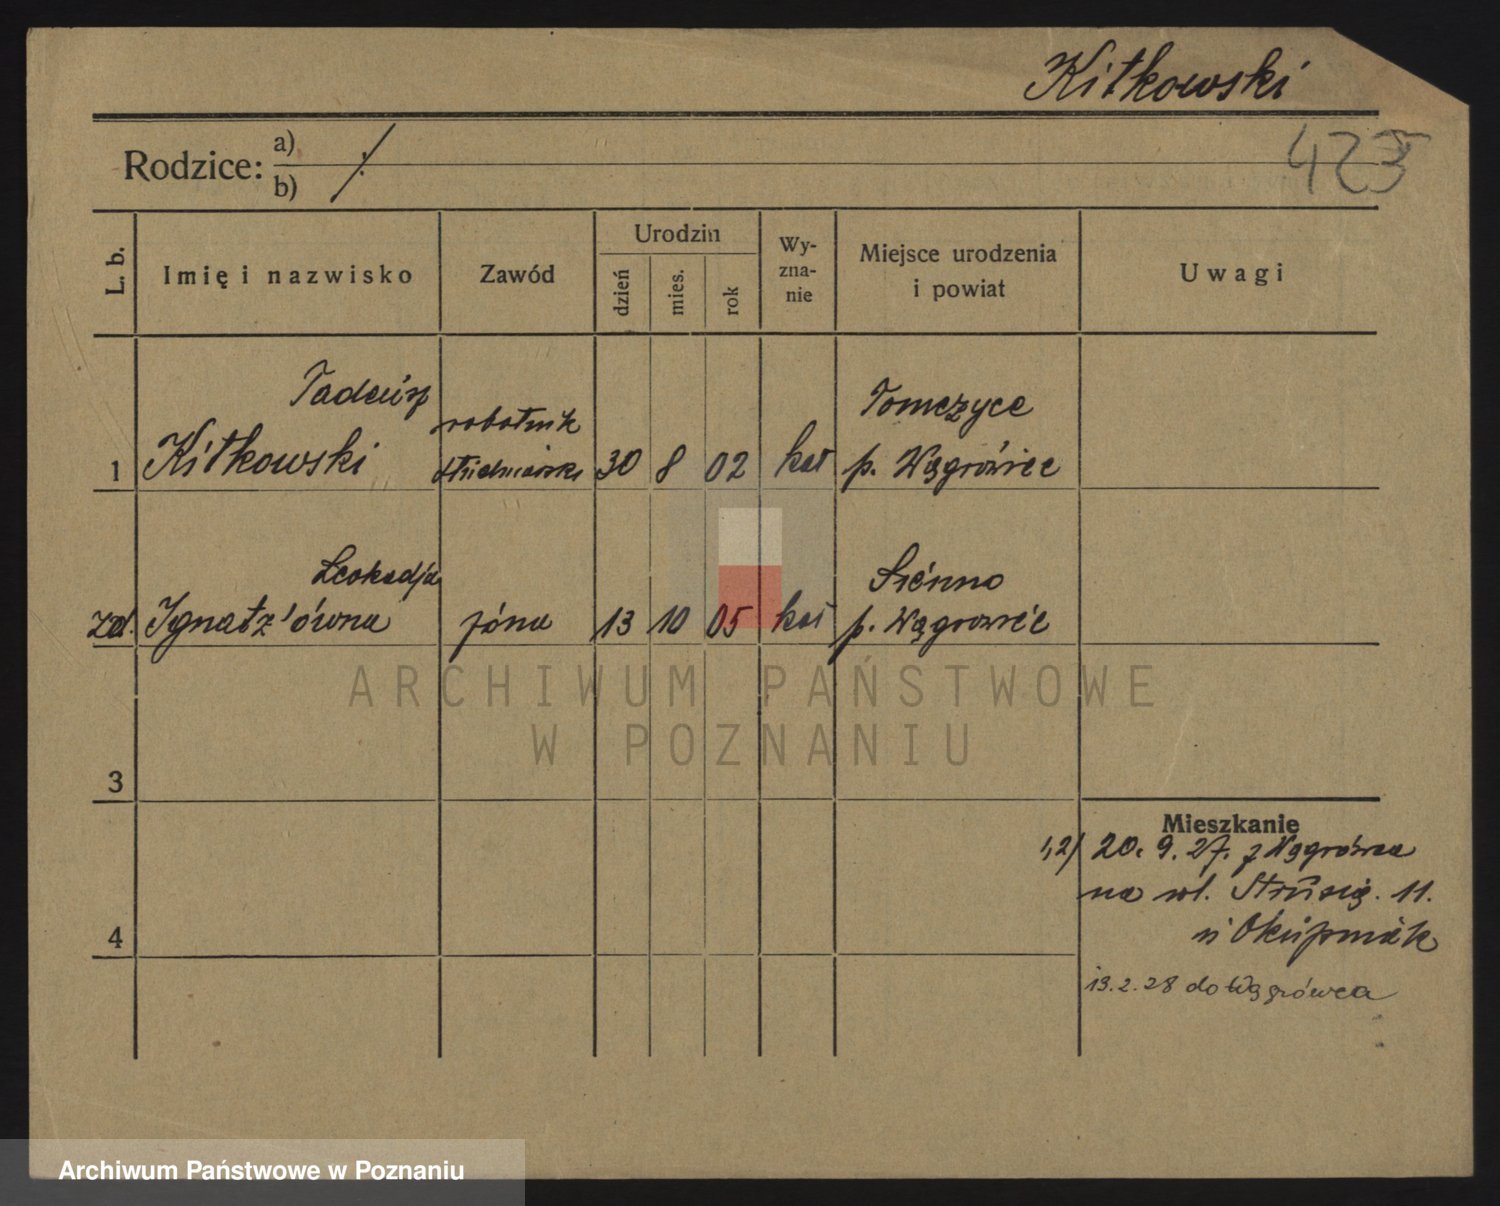 Kitkowski
423
Rodzice: a) ·/·
b)
L. b.
Imię i nazwisko
Zawód
Urodzin
dzień
mies.
rok
Wy-
zna-
nie
Miejsce urodzenia
i powiat
Uwagi
1
Tadeusz
Kitkowski
robotnik
30 8 02
kat
Tomczyce
p. Wągrówiec
żd.
Leokadja
Ignatz'ówna
żóna
13 10 05
kat
Siénno
p. Wągrowiéc
3
4
Mieszkanie
1,2/ 20. 9. 27. z Wągrówca
na ul. Strusią. 11.
u Okupniak
13.2.28 do Wągrówca
ARCHIWUM PAŃSTWOWE
W POZNANIU
Archiwum Państwowe w Poznaniu